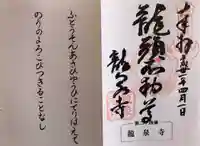 ふどうそんあさひゆうひにてりはえて
のりのよろこびつきることなし
奉拝
年四月一日
龍頭不動尊
龍泉寺
龍泉寺